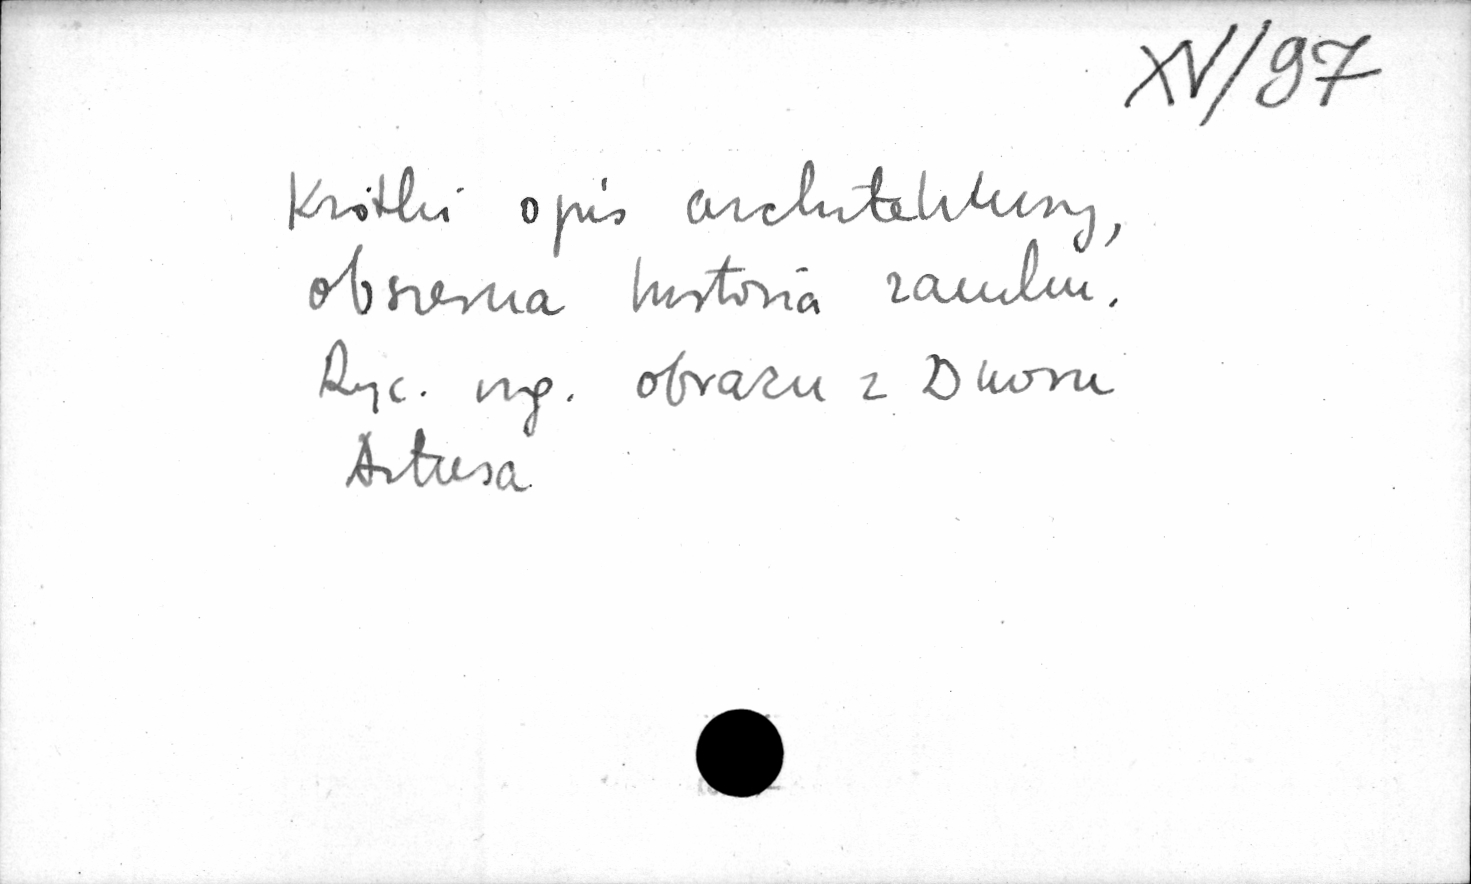 XV/97
Krótki opis architektury,
obszerna historia zamku.
Ryc. wg. obrazu z Dworu
Artusa